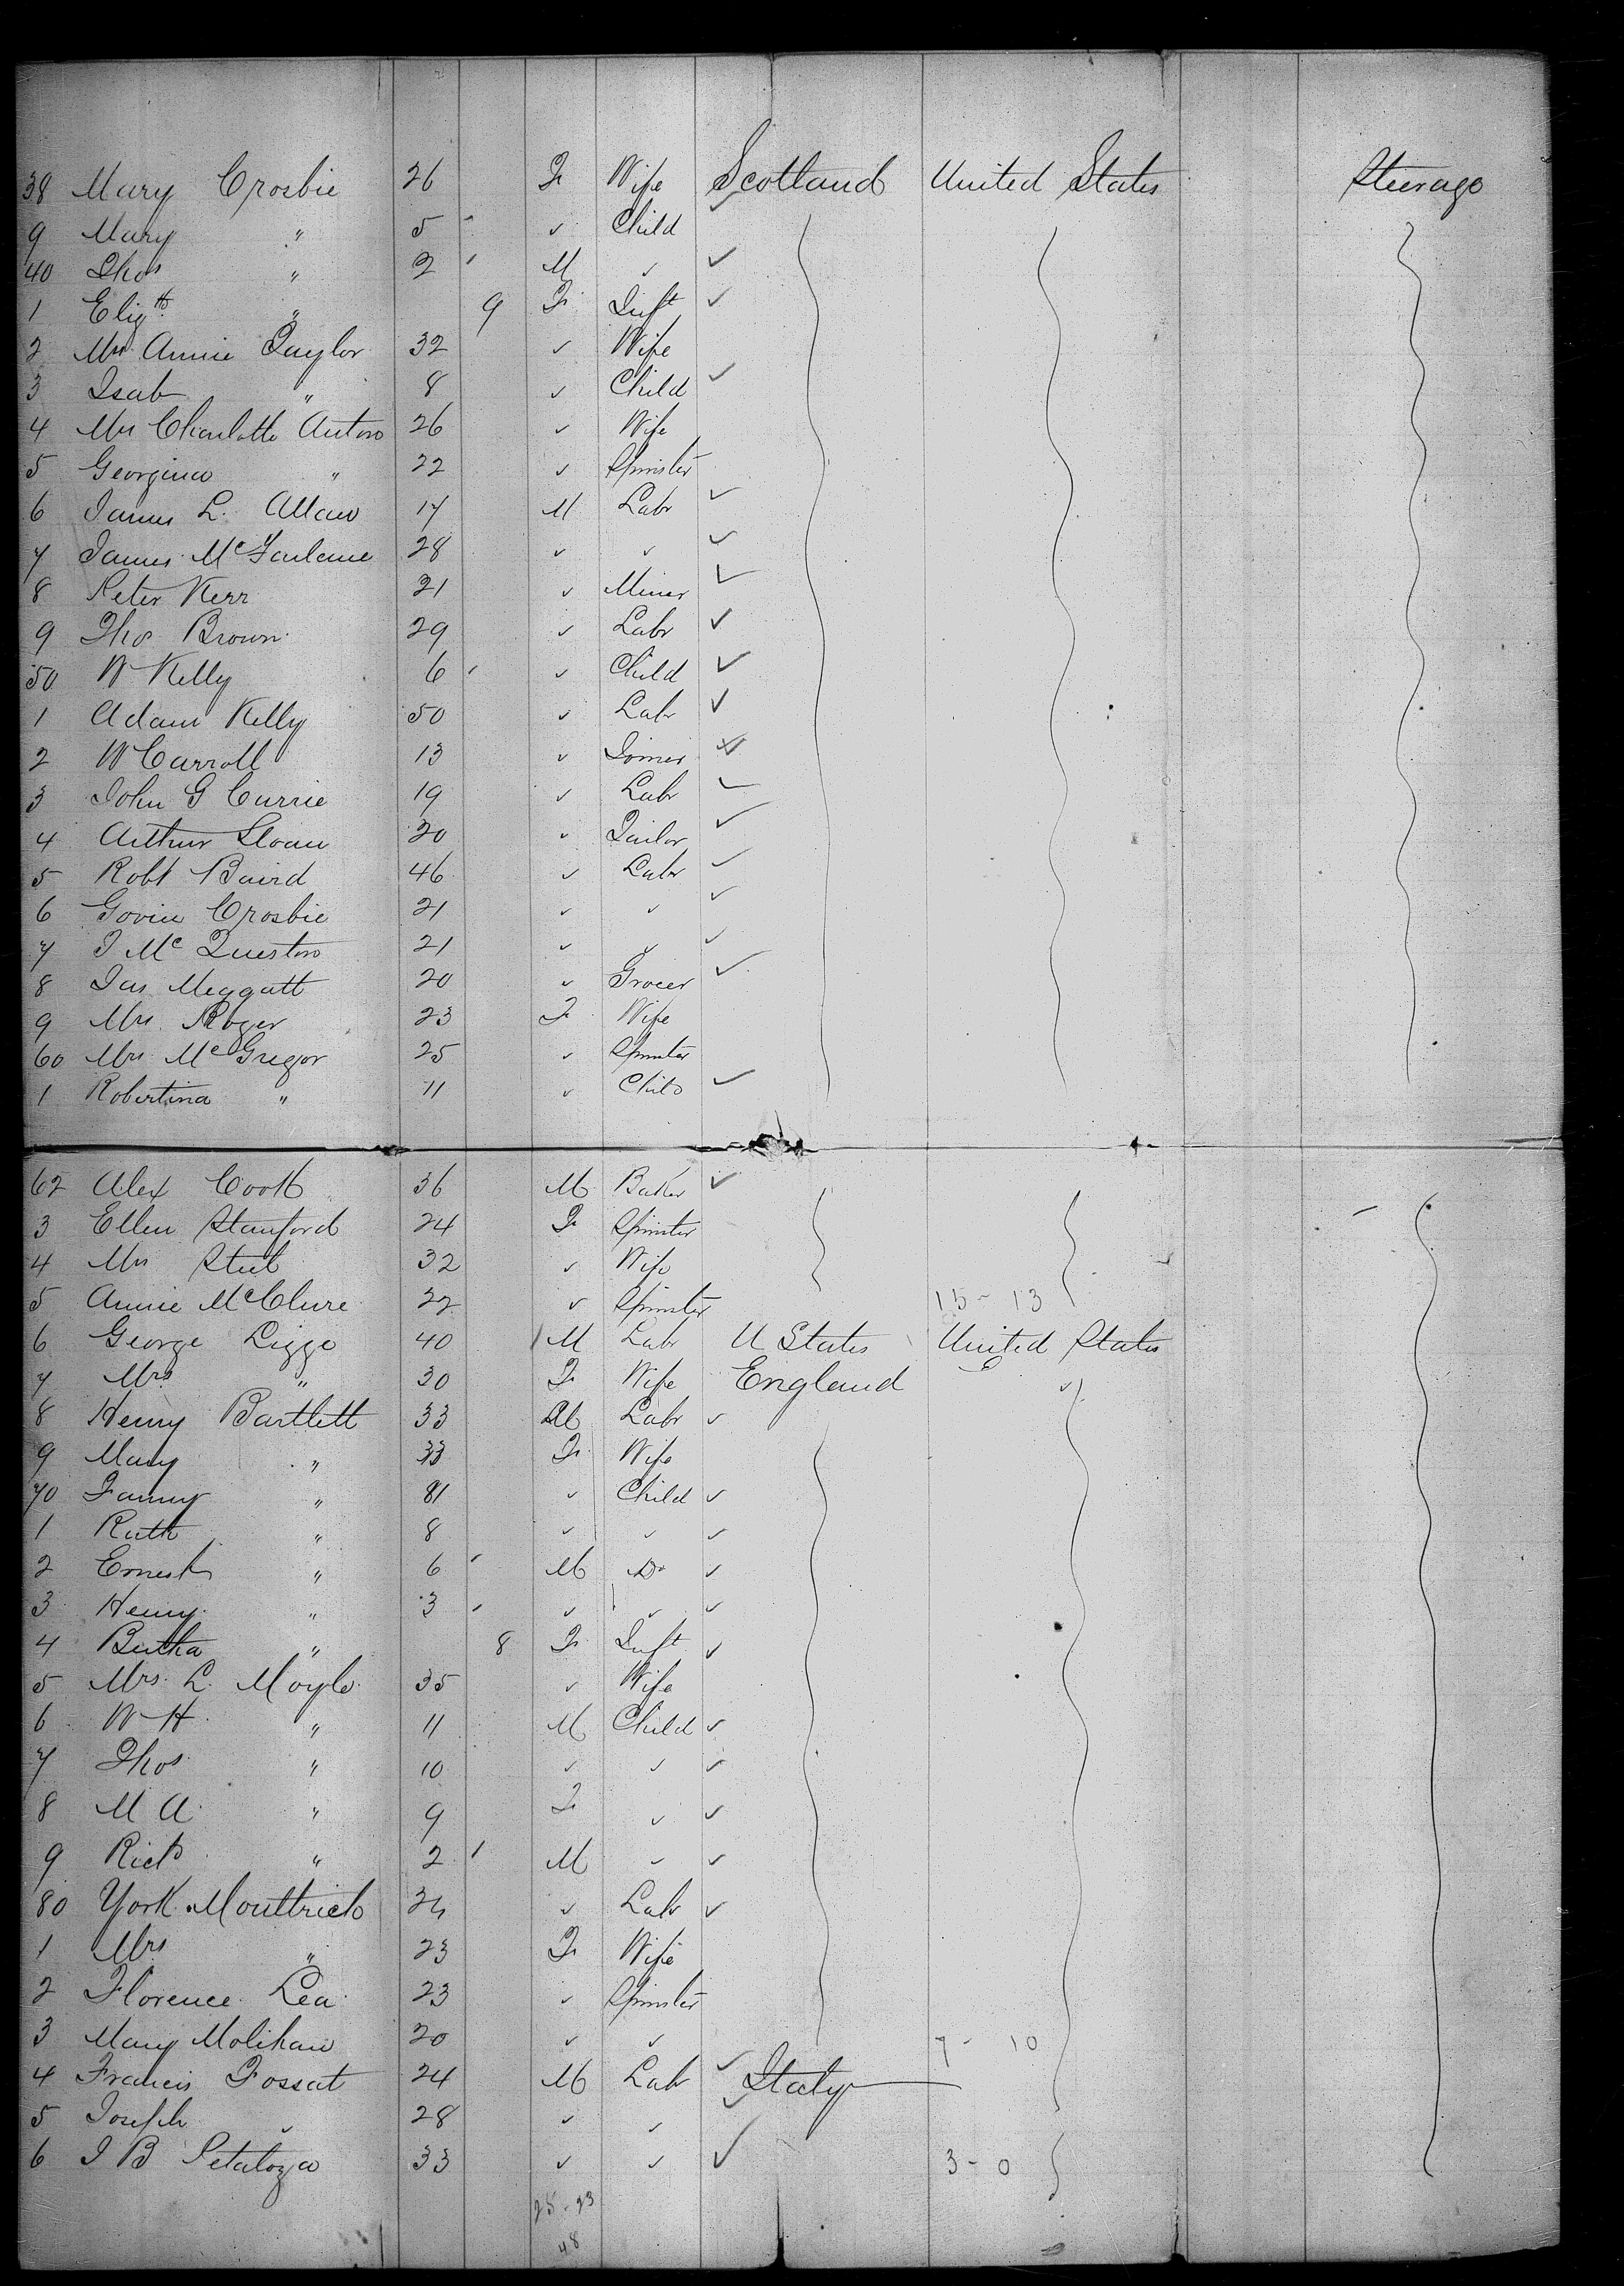 38 Mary Crosbie 26 F Wife Scotland United States Steerage
9 Mary " 5 ✓ Child
40 Thos " 2 M ✓ ✓
1 Eliz th " 9 F Inft ✓
2 Mrs Annie Taylor 32 ✓ Wife
3 Isab " 8 ✓ Child ✓
4 Mrs Charlotte Anton 26 ✓ Wife
5 Georgina " 22 ✓ Spinster
6 James L. Allan 17 M Labr ✓
7 James McFarlane 28 ✓ ✓ ✓
8 Peter Kerr 21 ✓ Miner ✓
9 Thos Brown 29 ✓ Labr ✓
50 W Kelly 6 ✓ Child ✓
1 Adam Kelly 50 ✓ Labr ✓
2 W Carroll 13 ✓ Joiner ✓
3 John G Currie 19 ✓ Labr ✓
4 Arthur Sloan 20 ✓ Tailor ✓
5 Robt Baird 46 ✓ Labr ✓
6 Govin Crosbie 21 ✓ ✓ ✓
7 J McQueston 21 ✓ ✓ ✓
8 Jas Meggatt 20 ✓ Grocer ✓
9 Mrs Roger 23 F Wife
60 Mrs McGregor 25 ✓ Spinster
1 Robertina " 11 ✓ Child ✓
62 Alex Cook 36 M Baker ✓
3 Ellen Stanford 24 F Spinster
4 Mrs Steel 32 ✓ Wife
5 Annie McClure 22 ✓ Spinster 15 - 13
6 George Ligge 40 M Labr U States United States
7 Mrs " 30 F Wife England E
8 Henry Bartlett 33 M Labr ✓
9 Mary " 33 F Wife
70 Fanny " ✓ Child ✓
1 Ruth " 8 ✓ ✓ ✓
2 Ernest " 6 M Do ✓
3 Henry " 3 ✓ ✓ ✓
4 Bertha " 8 F Inft ✓
5 Mrs L. Moyle 35 ✓ Wife
6 W H " 11 M Child ✓
7 Thos " 10 ✓ ✓ ✓
8 M A " 9 F ✓ ✓
9 Richd " 2 M ✓ ✓
80 York Mouttrick 24 ✓ Labr ✓
1 Mrs " 23 F Wife
2 Florence Lea 23 ✓ Spinster
3 Mary Molihan 20 ✓ ✓ 7 - 10
4 Francis Fossat 24 M Labr ✓ Italy
5 Joseph ✓ 28 ✓ ✓ ✓
6 J B Petaloza 33 ✓ ✓ ✓ 3 - 0
25 - 23
48